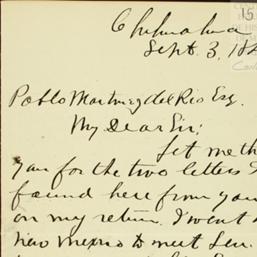 15
Chihuahua
Sept. 3, 18
Pablo Martinez del Rio Esq.
My Dear Sir;
Let me th
you for the two letters I
found here from you
on my return. I went
New Mexico to meet Gen.